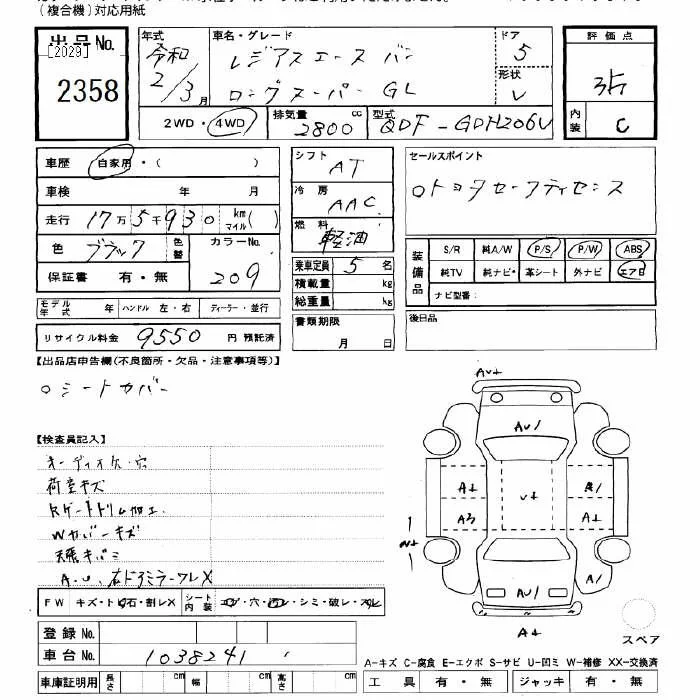 (複合機)対応用紙
出品No.
[2029]
2358
年式
令和
2/3月
車名・グレード
レジアスエース バン
ロングスーパーGL
ドア
5
形状
V
評価点
3.5
内装
C
2WD・4WD
排気量
2800cc
型式
QDF-GDH206V
車歴 自家用・( )
車検 年 月
走行 17万5千930 km マイル( )
色 ブラック 色替
カラーNo.
209
保証書 有・無
モデル年式 年 ハンドル 左・右 ディーラー・並行
リサイクル料金 9550 円 預託済
シフト AT
冷房 AAC
燃料 軽油
乗車定員 5 名
積載量 kg
総重量 kg
書類期限
月 日
セールスポイント
ロトヨタセーフティセンス
装備品
S/R 純A/W P/S P/W ABS
純TV 純ナビ・ 革シート 外ナビ エアB
ナビ型番:
後日品
【出品店申告欄(不良箇所・欠品・注意事項等)】
ロシートカバー
【検査員記入】
オーディオ欠・穴
荷室キズ
Rゲートトリム加工
Wカバーキズ
天張キバミ
A.U. 右ドアミラーワレX
FW キズ・ト石・割レX
シート内装 コゲ・穴・ヨゴレ・シミ・破レ・スレ
登録No.
車台No. 1038241
車庫証明用 長さ cm 幅 cm 高さ cm
AU1
A1
A3
A1
A1
AU1
スペア
A-キズ C-腐食 E-エクボ S-サビ U-凹ミ W-補修 XX-交換済
工具 有・無 ジャッキ 有・無